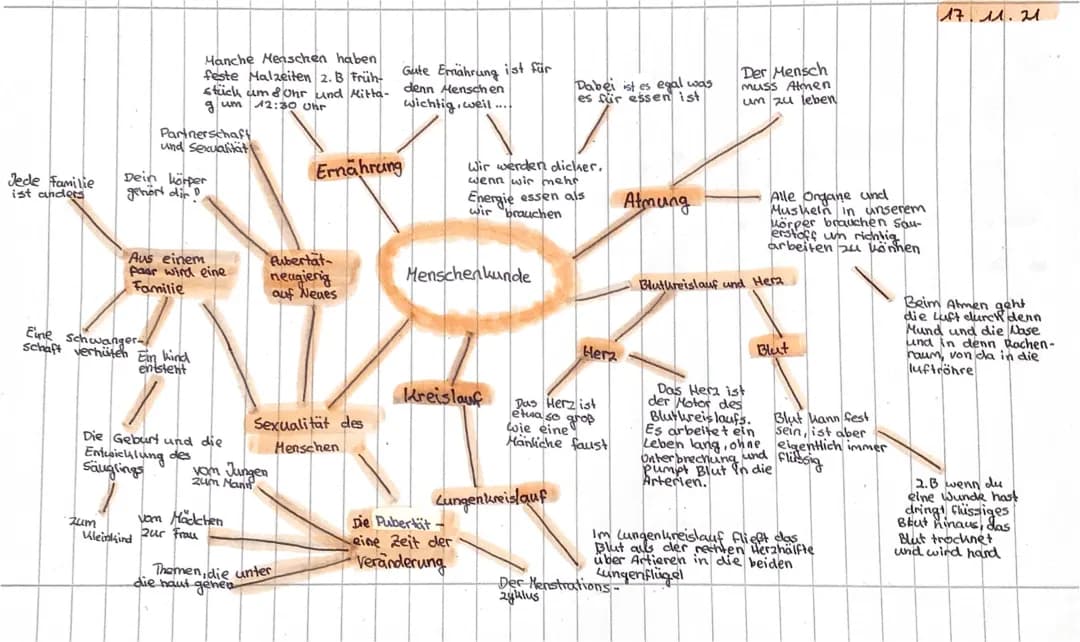 17.11.21
Manche Menschen haben
feste Malzeiten z.B Früh-
stück um 8 Uhr und Mitta-
g um 12:30 Uhr
Gute Ernährung ist für
denn Menschen
wichtig, weil ....
Dabei ist es egal was
es für essen ist
Der Mensch
muss Atmen
um zu leben
Partnerschaft
und Sexualität
Ernährung
Wir werden dicker,
wenn wir mehr
Energie essen als
wir brauchen
Jede Familie
ist anders
Dein körper
gehört dir!
Atmung
Alle Organe und
Muskeln in unserem
körper brauchen Sau-
erstoff um richtig
arbeiten zu können
Aus einem
paar wird eine
Familie
Pubertät-
neugierig
auf Neues
Menschenkunde
Blutkreislauf und Herz
Beim Atmen geht
die Luft durch denn
Mund und die Nase
und in denn Rachen-
raum, von da in die
luftröhre
Eine Schwanger-
schaft verhüten
Ein kind
entsteht
Herz
Blut
Kreislauf
Das Herz ist
etwa so groß
wie eine
Mänliche faust
Das Herz ist
der Motor des
Blutkreislaufs.
Es arbeitet ein
Leben lang, ohne
Unterbrechung und
pumpt Blut in die
Arterien.
Blut kann fest
sein, ist aber
eigentlich immer
flüssig
Sexualität des
Menschen
Die Geburt und die
Entwicklung des
Säuglings
vom Jungen
zum Mann
Lungenkreislauf
z.B wenn du
eine Wunde hast
dringt flüssiges
Blut hinaus, das
Blut trocknet
und wird hard
zum
Kleinkind
vom Mädchen
zur Frau
Die Pubertät -
eine Zeit der
Veränderung
Im Lungenkreislauf fließt das
Blut aus der rechten Herzhälfte
über Artieren in die beiden
Lungenflügel
Themen, die unter
die haut gehen
Der Menstrations-
zyklus